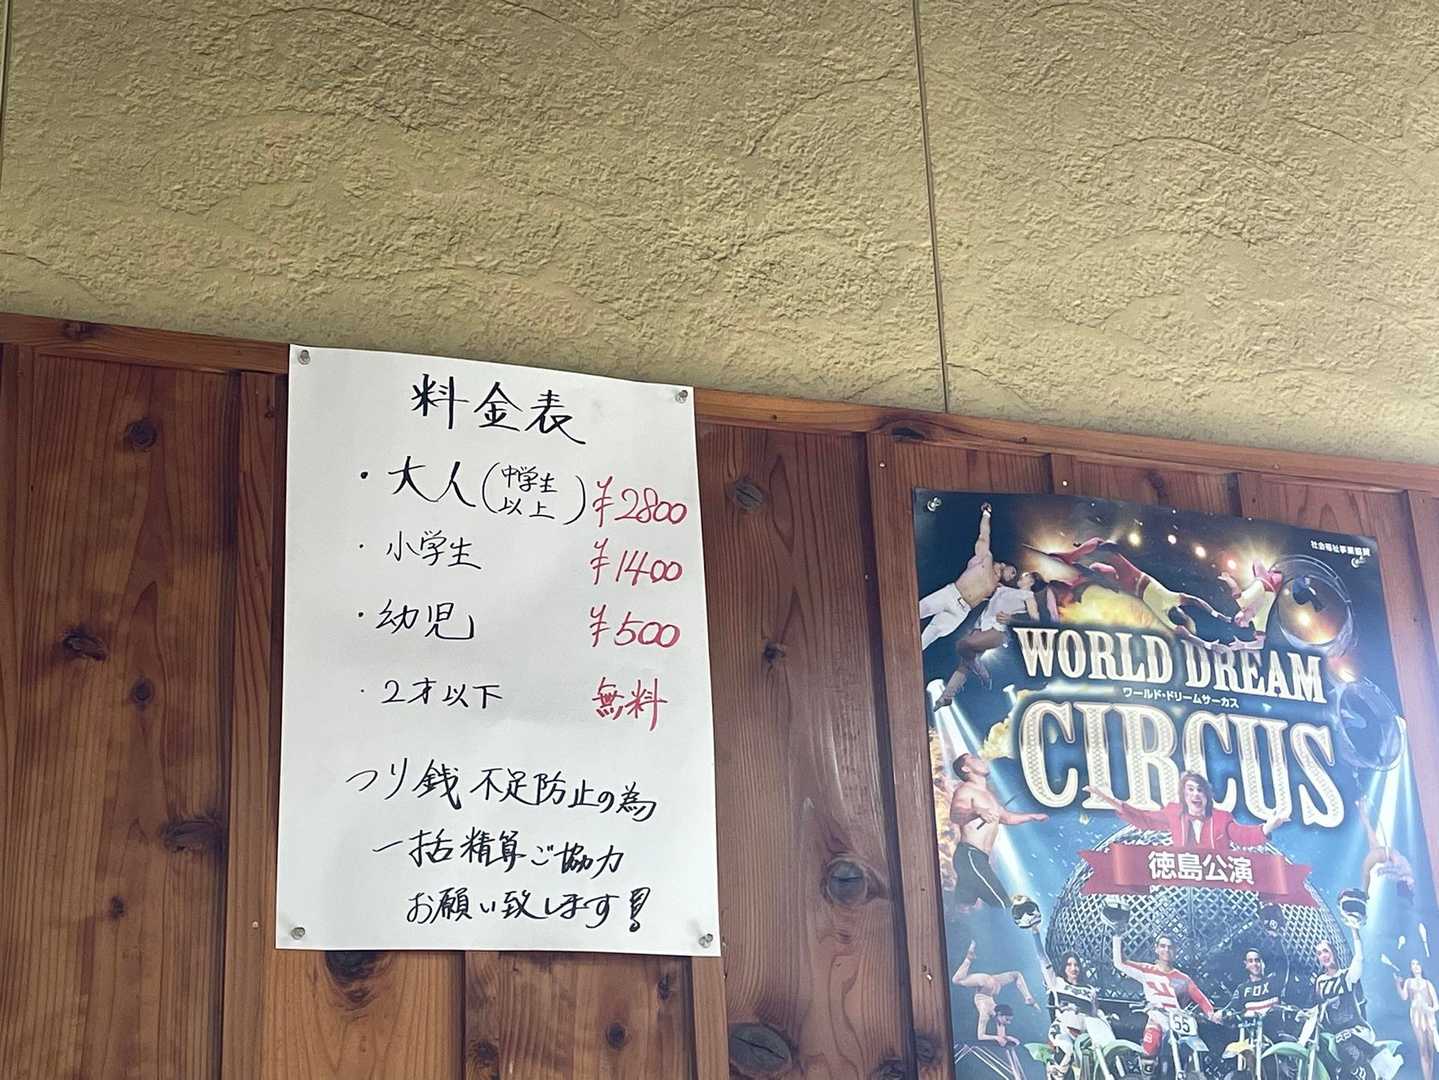 料金表
・大人(中学生以上) ¥2800
・小学生 ¥1400
・幼児 ¥500
・2才以下 無料
つり銭不足防止の為
一括精算ご協力
お願い致します!
社会福祉事業協賛
WORLD DREAM
ワールド・ドリームサーカス
CIRCUS
徳島公演
FOX
55